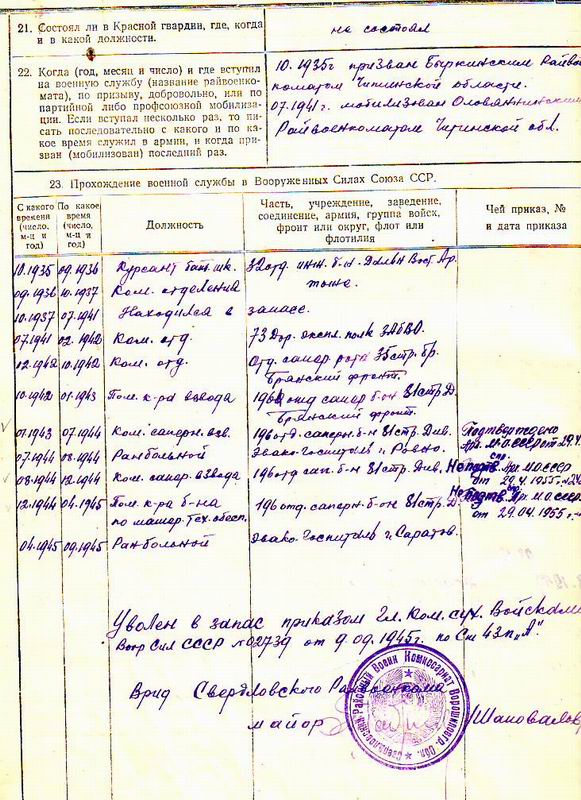 21. Состоял ли в Красной гвардии, где, когда
и в какой должности.
не состоял
22. Когда (год, месяц и число) и где вступил
на военную службу (название райвоенко-
мата), по призыву, добровольно, или по
партийной либо профсоюзной мобилиза-
ции. Если вступал несколько раз, то пи-
сать последовательно с какого и по ка-
кое время служил в армии, и когда при-
зван (мобилизован) последний раз.
10.1935г призван Быркинским Райвоен
коматом Читинской области.
07.1941г. мобилизован Оловяннинским
Райвоенкоматом Читинской обл.
23. Прохождение военной службы в Вооруженных Силах Союза ССР.
С какого времени (число, м-ц и год)
По какое время (число, м-ц и год)
Должность
Часть, учреждение, заведение,
соединение, армия, группа войск,
фронт или округ, флот или
флотилия
Чей приказ, №
и дата приказа
10.1935 09.1936 Курсант бат. шк. 32 отд. инж. б-н. Дальн Вост. Ар.
09.1936 10.1937 Ком. отделения тоже.
10.1937 07.1941 Находился в запасе.
07.1941 02.1942 Ком. отд. 73 Дор. экспл. полк ЗАБВО.
02.1942 10.1942 Ком. отд. Отд. сапер. рота 35 стр. бр.
Брянский фронт.
10.1942 01.1943 Пом. к-ра взвода 196 отд сапер б-н 81 стр Д.
Брянский фронт.
01.1943 07.1944 Ком. саперн. взв. 196 отд. саперн. б-н 81 стр. Див. Подтверждено
Пр. МО СССР от 29.4
07.1944 08.1944 Ранбольной Эвако. Госпиталь г. Ровно.
08.1944 12.1944 Ком. сапер. взвода 196 отд сап. б-н 81 стр. Див. Не подтв. Пр. МО СССР
от 29.4.1955г.
12.1944 04.1945 Пом. к-ра б-на 196 отд. саперн. б-он 81 стр. Д. Не подтв. Пр. МО СССР
по матер. тех. обесп. от 29.04.1955г.
04.1945 09.1945 Ранбольной Эвако. Госпиталь г. Саратов.
Уволен в запас приказом Гл. Ком. сух. Войсками
Воор Сил СССР №02739 от 9.09.1945г. по См 43 п. „А".
Врид Свердловского Райвоенкома
майор Шаповалов
Свердловский Районный Военн Комиссариат Ворошиловгр. Обл.